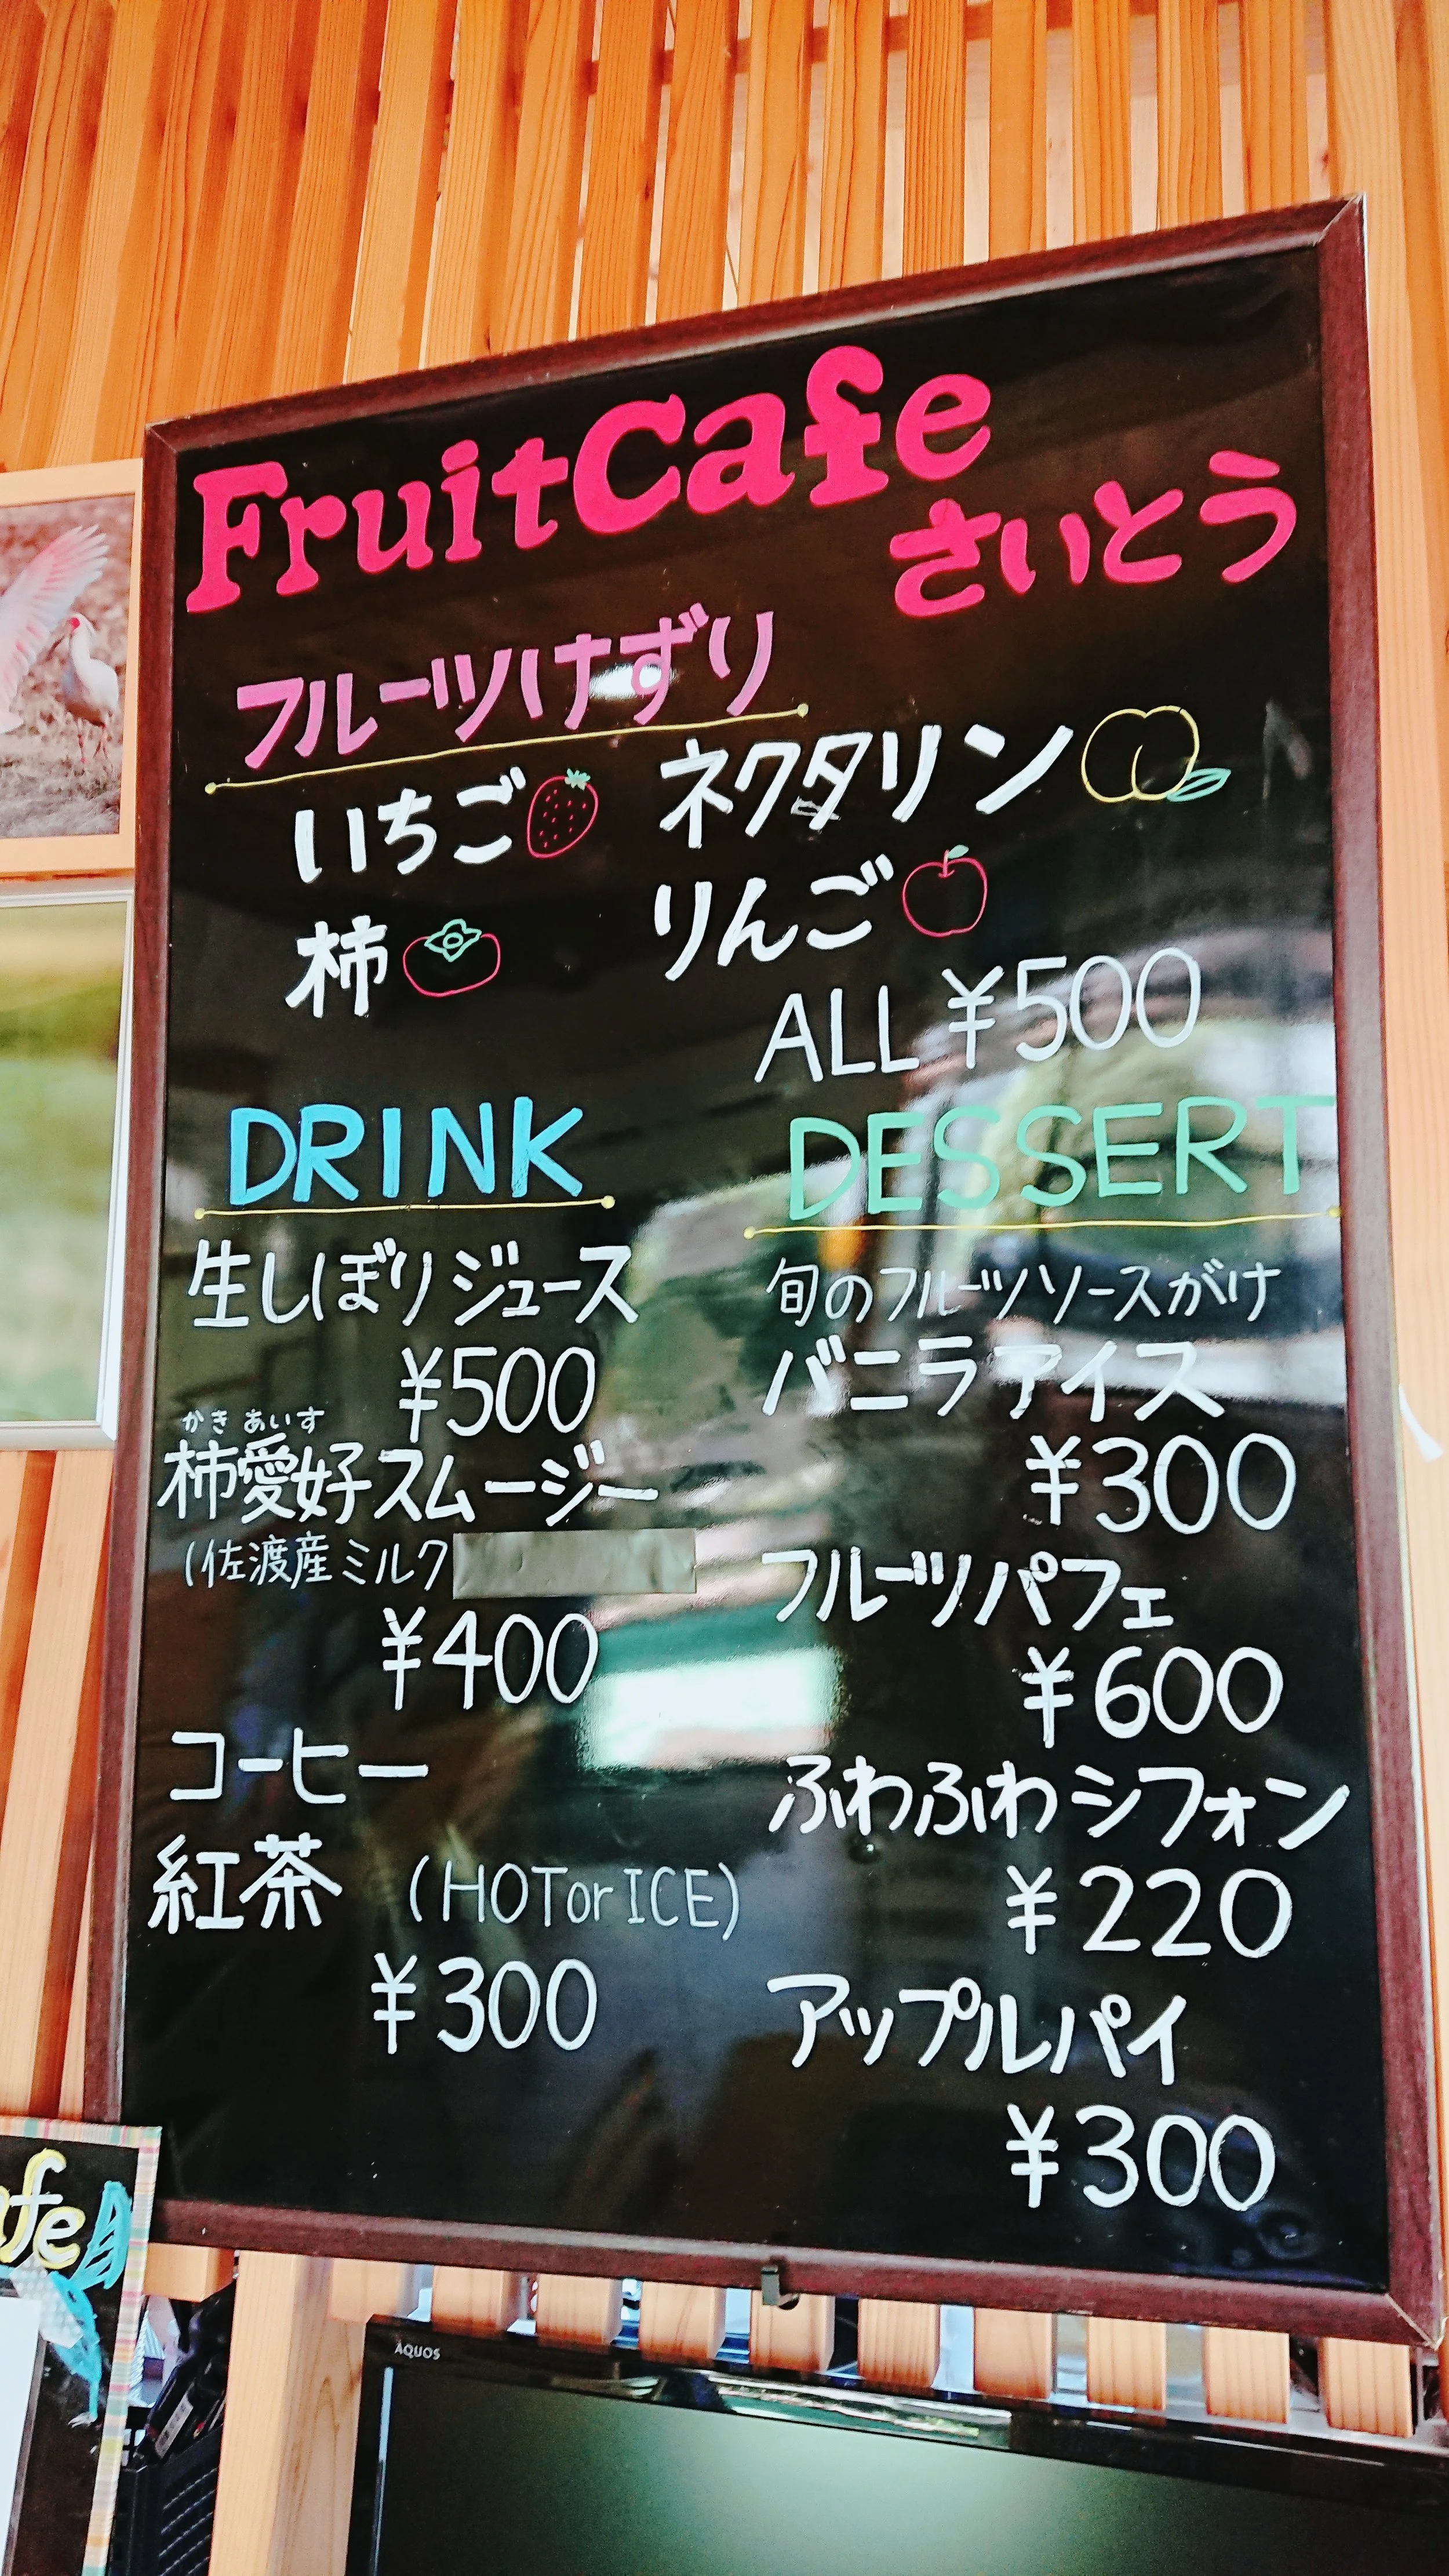 FruitCafe
さいとう
フルーツけずり
いちご ネクタリン
柿 りんご
ALL ¥500
DRINK
生しぼりジュース
¥500
かき あいす
柿愛好スムージー
(佐渡産ミルク
¥400
コーヒー
紅茶 (HOTorICE)
¥300
DESSERT
旬のフルーツソースがけ
バニラアイス
¥300
フルーツパフェ
¥600
ふわふわシフォン
¥220
アップルパイ
¥300
afe
AQUOS